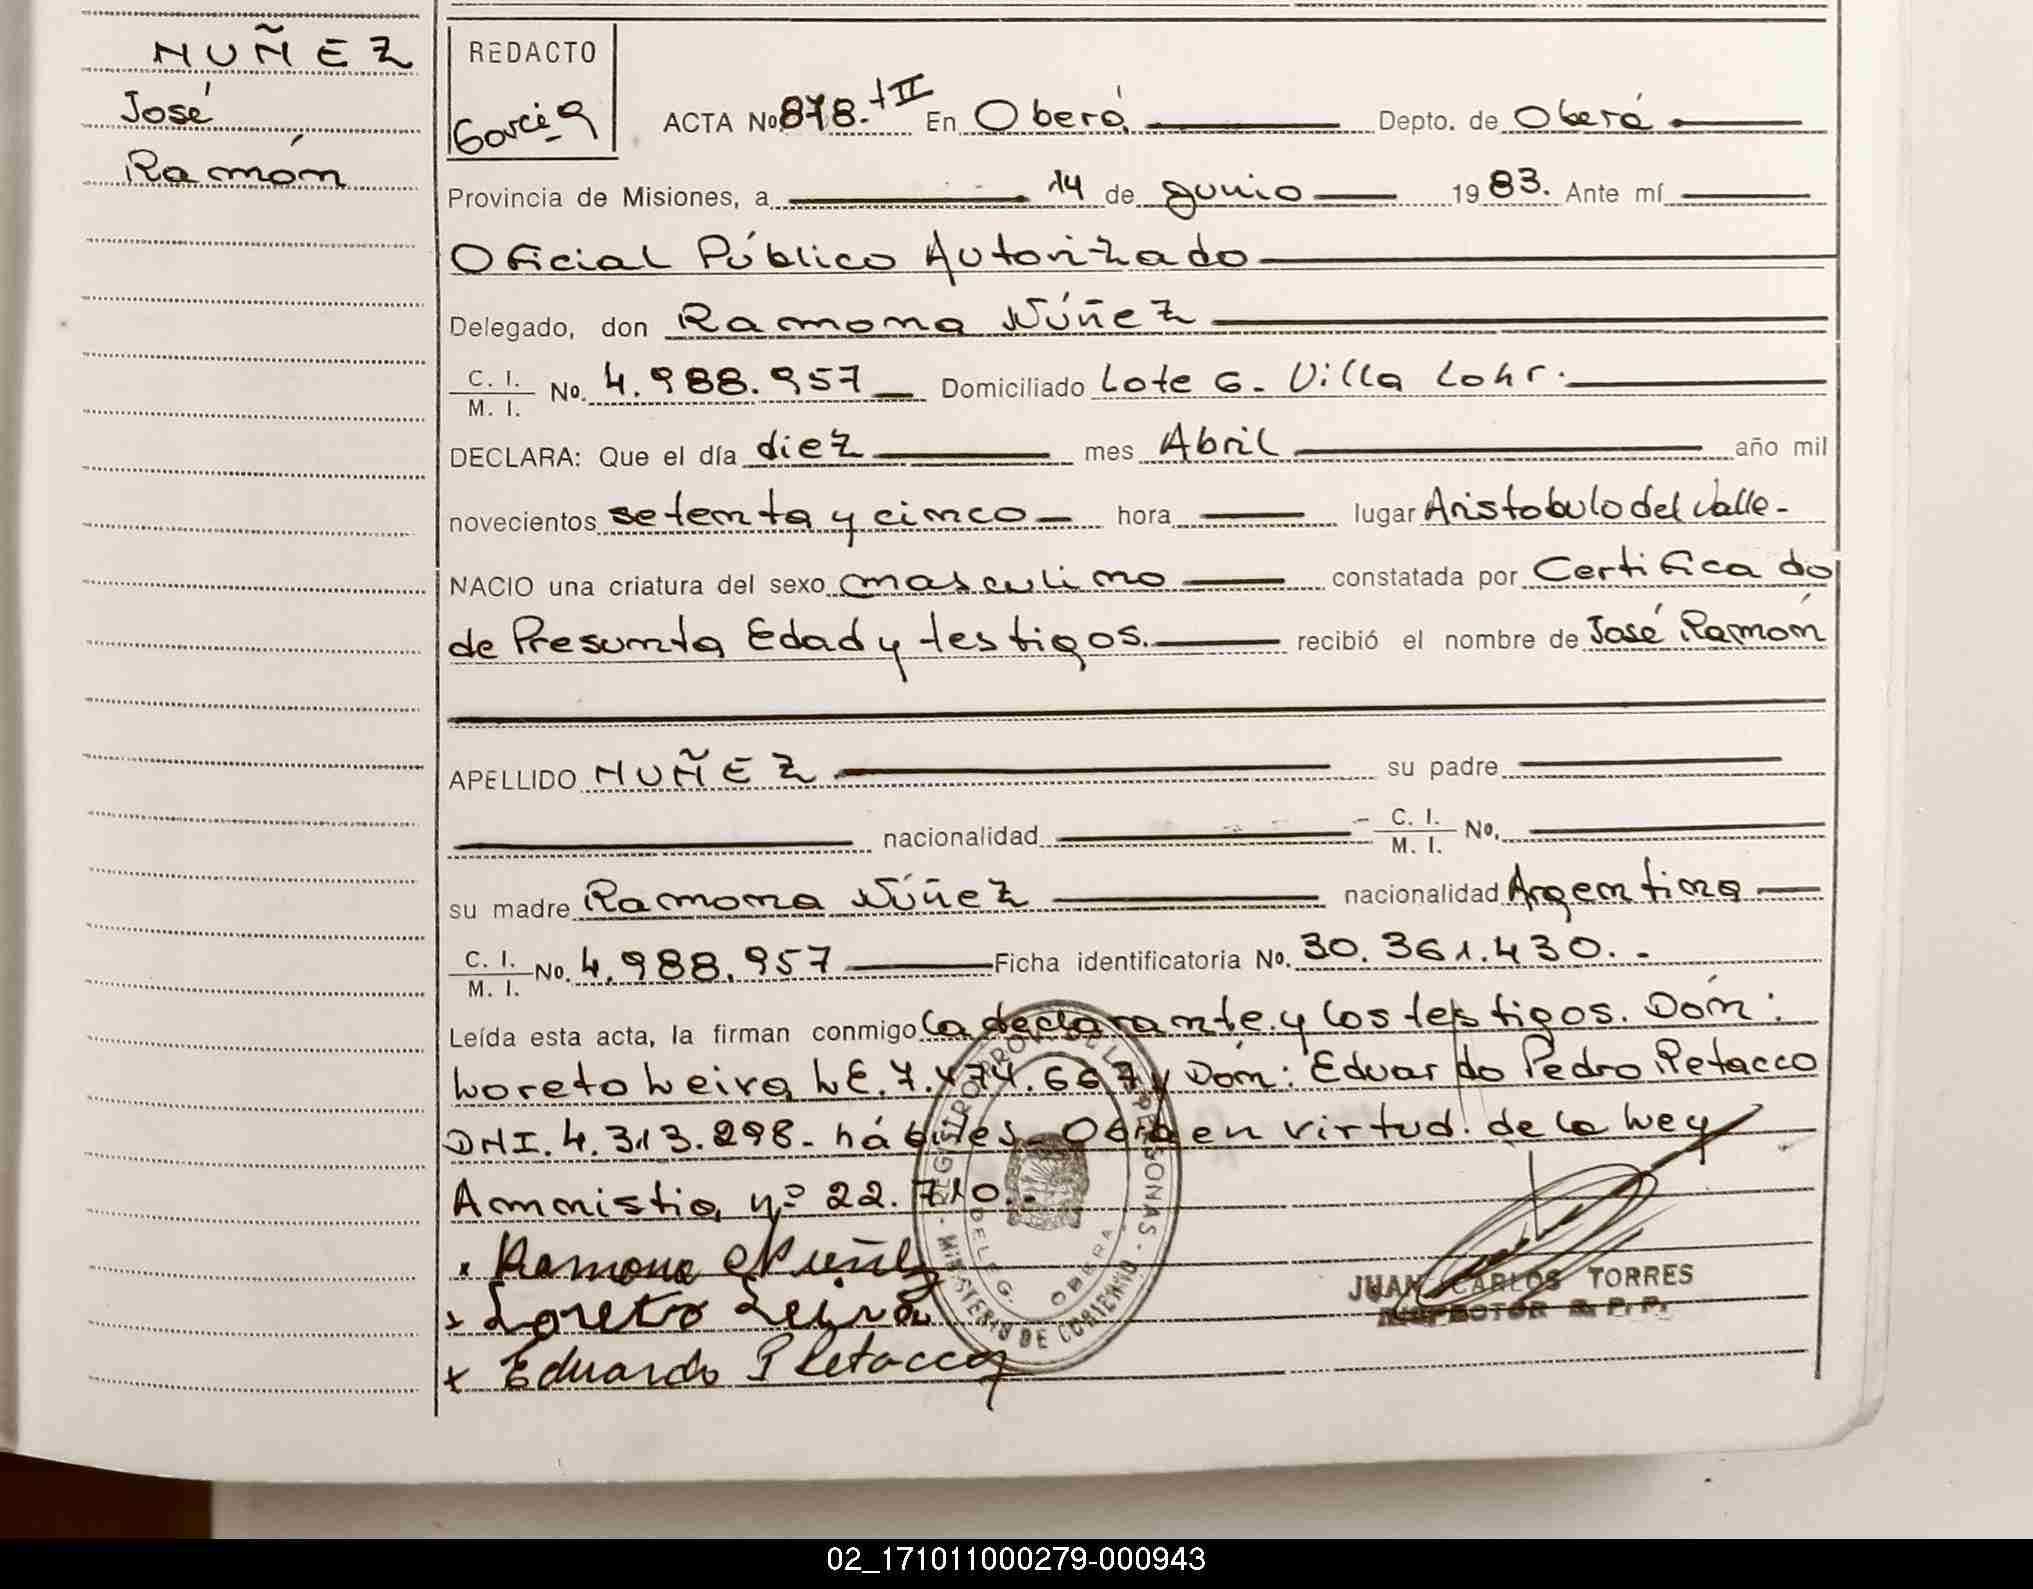 NUÑEZ
José
Ramón
REDACTO
Garcia
ACTA No 878. tII En Oberá Depto. de Oberá
Provincia de Misiones, a 14 de Junio 1983. Ante mí
Oficial Público Autorizado
Delegado, don Ramona Núñez
C. I. / M. I. No. 4.988.957 Domiciliado Lote 6. Villa Lohr.
DECLARA: Que el día diez mes Abril año mil
novecientos setenta y cinco hora lugar Aristobulo del Valle.
NACIO una criatura del sexo masculino constatada por Certificado
de Presunta Edad y testigos. recibió el nombre de José Ramón
APELLIDO NUÑEZ su padre
nacionalidad C. I. / M. I. No.
su madre Ramona Núñez nacionalidad Argentina
C. I. / M. I. No. 4.988.957 Ficha identificatoria No. 30.361.430.
Leída esta acta, la firman conmigo la declarante y los testigos. Don:
Loreto Leiva LE. 7.474.667 y Don: Eduardo Pedro Retacco
DNI. 4.313.298. hábiles. Obra en virtud de la Ley
Amnistia nº 22.710.
x Ramona Nuñez
x Loreto Leiva
x Eduardo P Retacco
REGISTRO PROV. DE LAS PERSONAS - MINISTERIO DE GOBIERNO
DELEG. OBERA
JUAN CARLOS TORRES
INSPECTOR R. P. P.
02_171011000279-000943